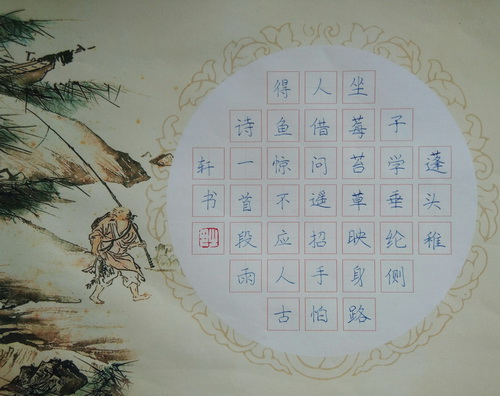 蓬头稚
子学垂纶侧
坐莓苔草映身路
人借问遥招手怕
得鱼惊不应人古
诗一首段雨
轩书